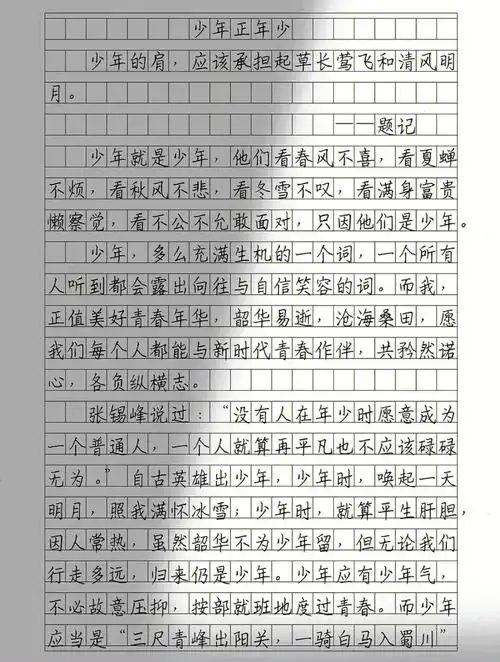 少年正年少
少年的肩，应该承担起草长莺飞和清风明
月。
——题记
少年就是少年，他们看春风不喜，看夏蝉
不烦，看秋风不悲，看冬雪不叹，看满身富贵
懒察觉，看不公不允敢面对，只因他们是少年。
少年，多么充满生机的一个词，一个所有
人听到都会露出向往与自信笑容的词。而我，
正值美好青春年华，韶华易逝，沧海桑田，愿
我们每个人都能与新时代青春作伴，共矜然诺
心，各负纵横志。
张锡峰说过：“没有人在年少时愿意成为
一个普通人，一个人就算再平凡也不应该碌碌
无为。”自古英雄出少年，少年时，唤起一天
明月，照我满怀冰雪；少年时，就算平生肝胆，
因人常热，虽然韶华不为少年留，但无论我们
行走多远，归来仍是少年。少年应有少年气，
不必故意压抑，按部就班地度过青春。而少年
应当是“三尺青峰出阳关，一骑白马入蜀川”